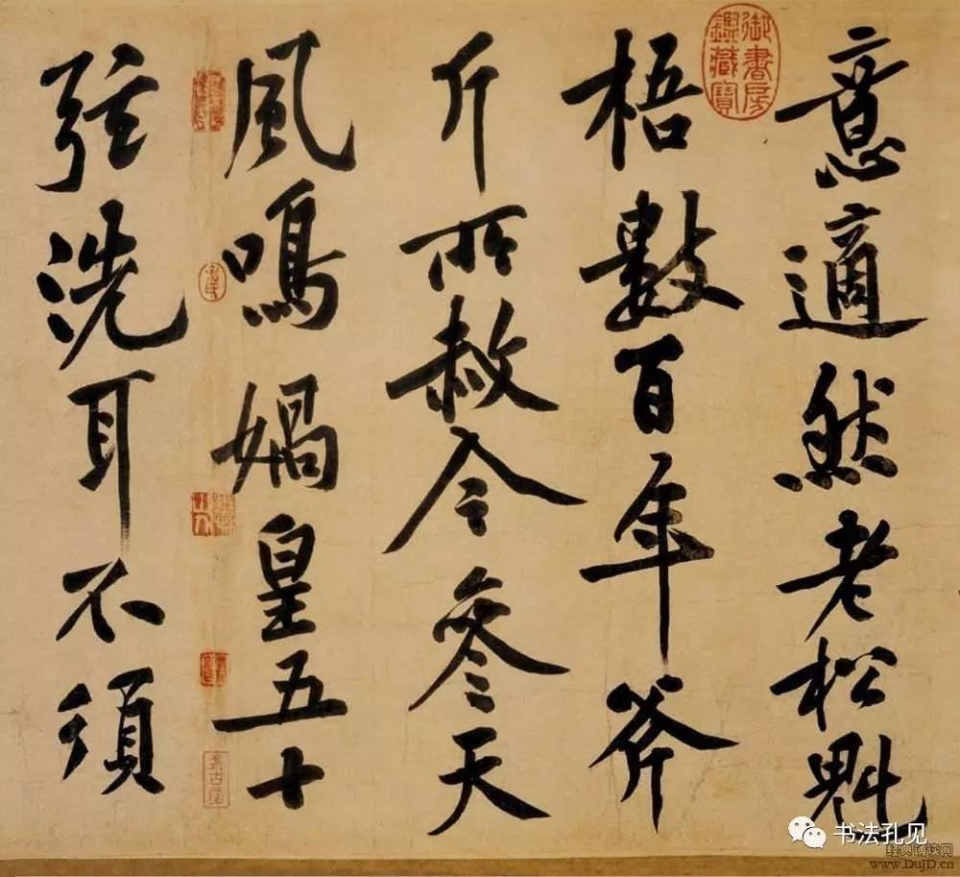 意適然老松魁
梧數百年斧
斤所赦今參天
風鳴媧皇五十
弦洗耳不須
御書房鑑藏寶
书法孔见
www.DujD.cn